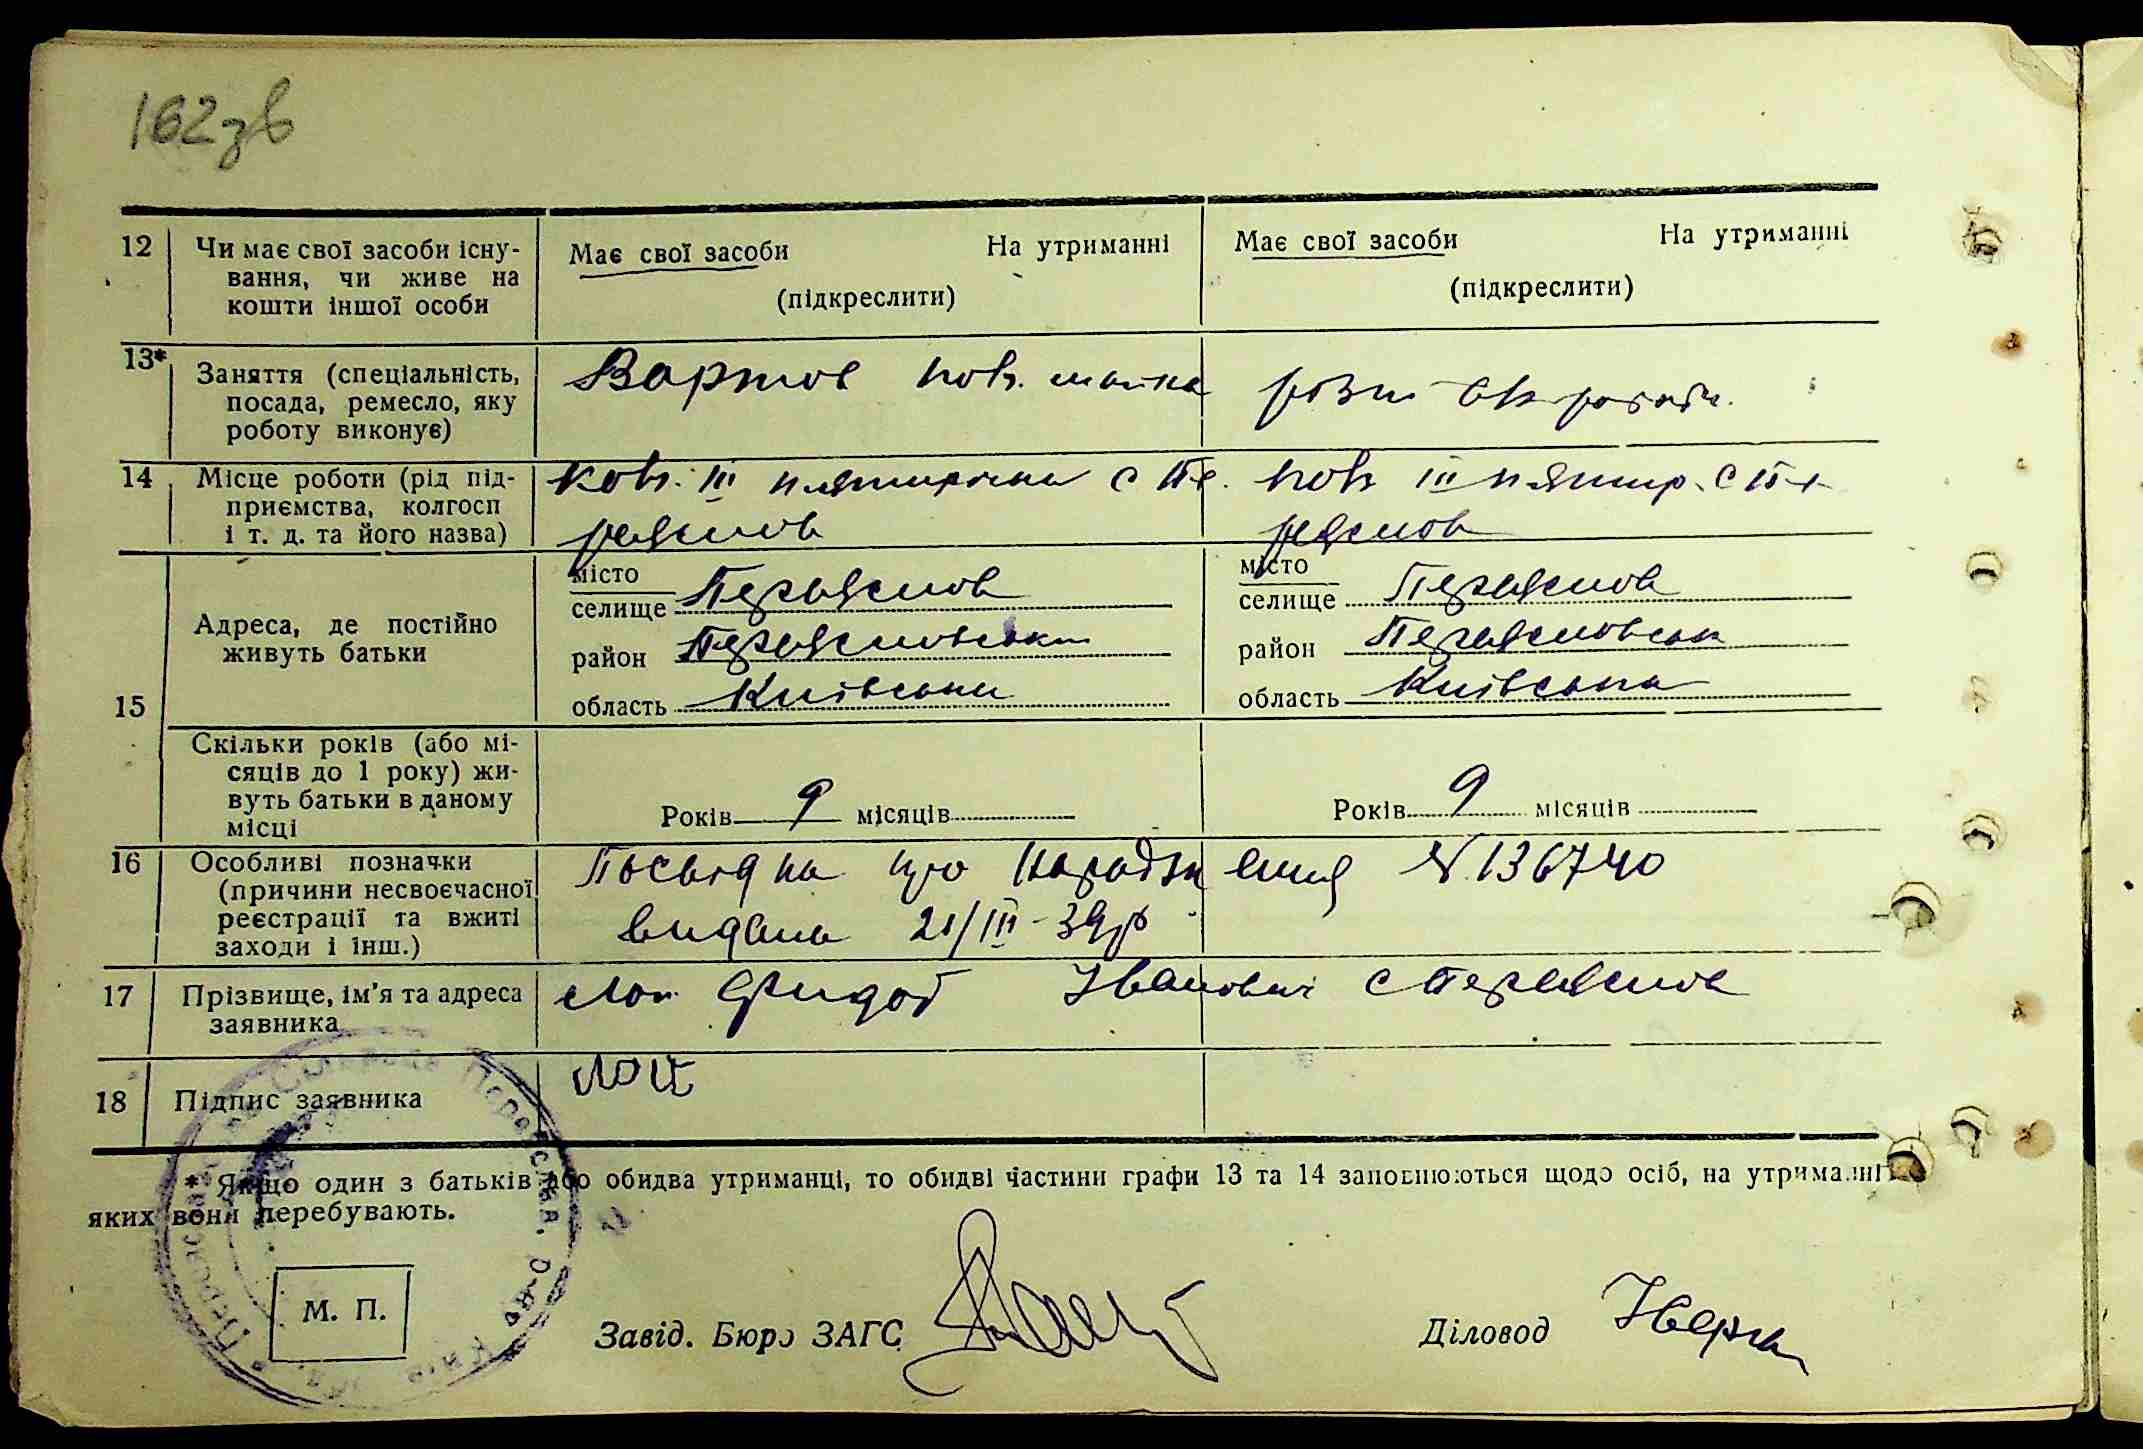 162зв
12 Чи має свої засоби існу-
вання, чи живе на
кошти іншої особи
Має свої засоби На утриманні
(підкреслити)
Має свої засоби На утриманні
(підкреслити)
13* Заняття (спеціальність,
посада, ремесло, яку
роботу виконує)
14 Місце роботи (рід під-
приємства, колгосп
і т. д. та його назва)
III пятирічки с Пе
реяслов
III пятир. с Пе
реяслов
15 Адреса, де постійно
живуть батьки
місто
селище Переяслов
район Переясловськ
область Київська
місто
селище Переяслов
район Переясловськ
область Київська
Скільки років (або мі-
сяців до 1 року) жи-
вуть батьки в даному
місці
Років 9 місяців
Років 9 місяців
16 Особливі позначки
(причини несвоєчасної
реєстрації та вжиті
заходи і інш.)
про народження № 136740
видана 21/III-39р
17 Прізвище, ім'я та адреса
заявника
Іванович с Переяслов
18 Підпис заявника
* Якщо один з батьків або обидва утриманці, то обидві частини графи 13 та 14 заповнюються щодо осіб, на утриманні
яких вони перебувають.
М. П.
Завід. Бюро ЗАГС
Діловод